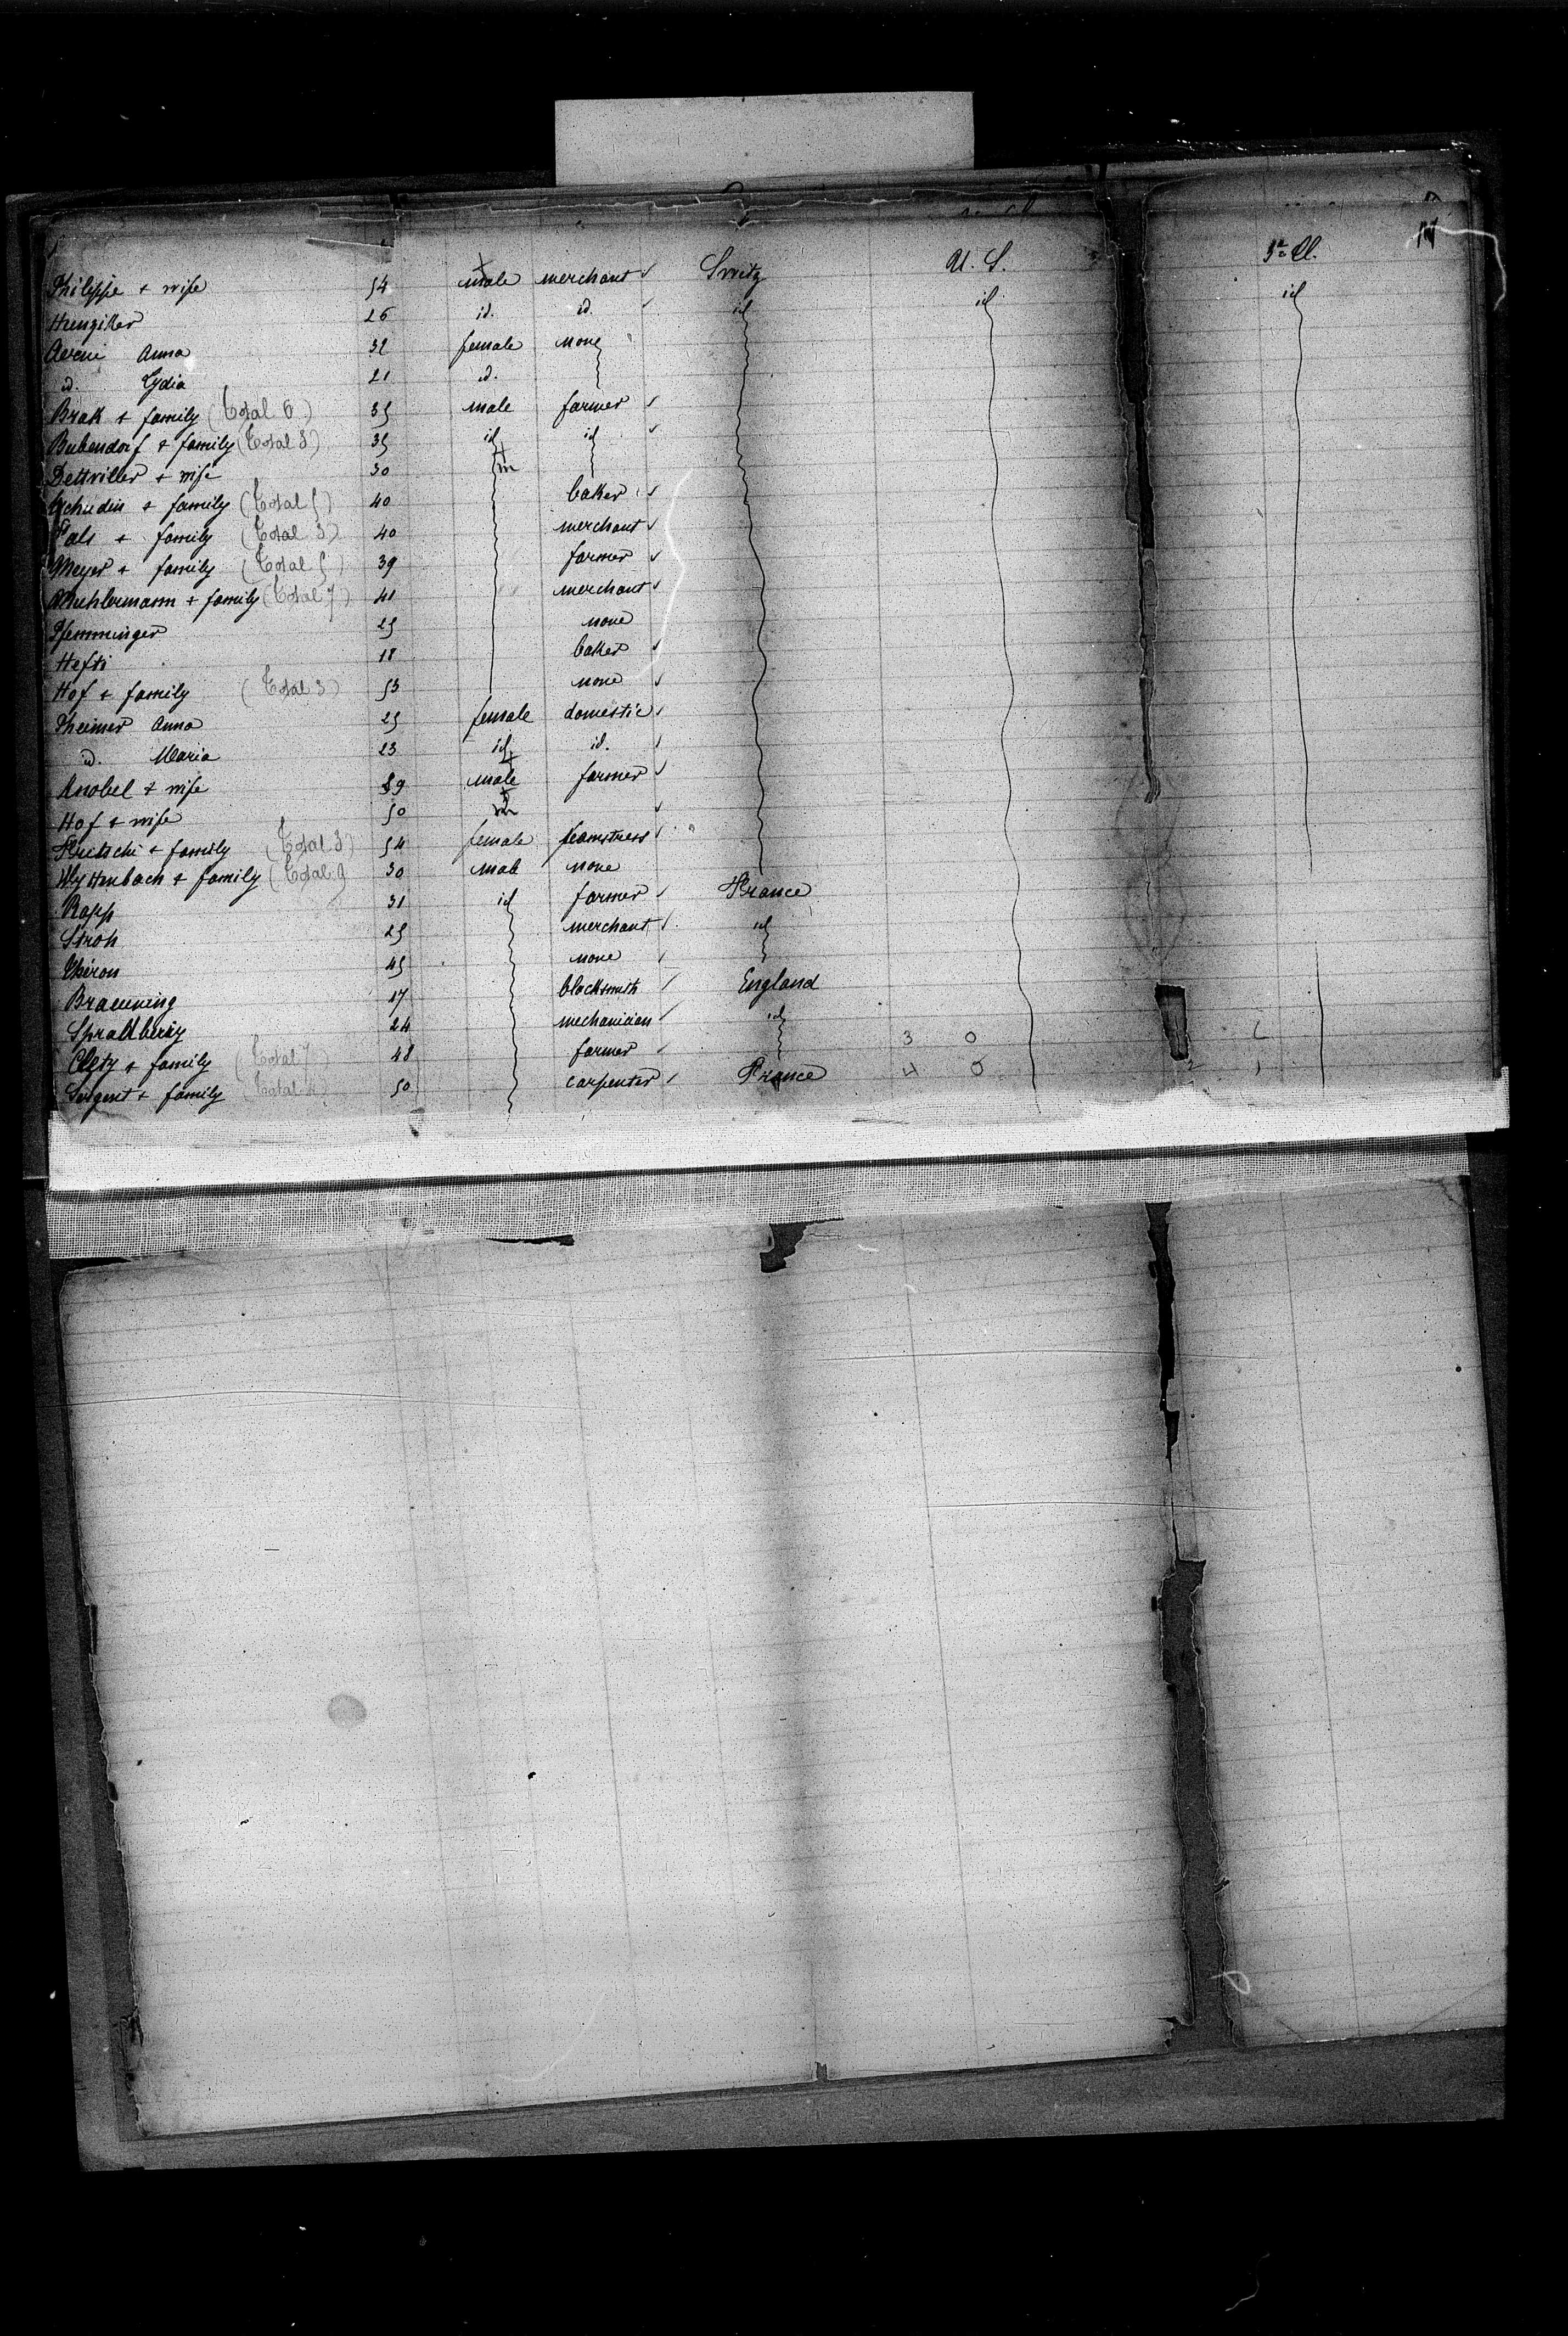 Philippe + wife 54 male merchant Switz U. S. 3e Cl.
Hunziker 26 id. id. id id id
Aerni Anna 32 female none
id. Lydia 21 id.
Brak + family (Total 6) 35 male farmer
Bubendorf + family (Total 3) 35 id id
Dettwiller + wife 30 m
Tschudin + family (Total 5) 40 baker
+ family (Total 3) 40 merchant
Meyer + family (Total 5) 39 farmer
Muehlermann + family (Total 7) 41 merchant
Pfenninger 25 none
Hefti 18 baker
Hof + family (Total 3) 53 none
Theimer Anna 25 female domestic
id. Maria 23 id id.
Knobel + wife 29 male farmer
Hof + wife 50 m
+ family (Total 3) 54 female seamstress
Wyttenbach + family (Total 9) 30 male none
Rapp 31 id farmer France
Stroh 25 merchant id
Théron 45 none
Braeuning 17 blacksmith England
Spradbery 24 mechanician id
+ family (Total 7) 48 farmer 3 0
Sergent + family (Total 4) 50 carpenter France 4 0